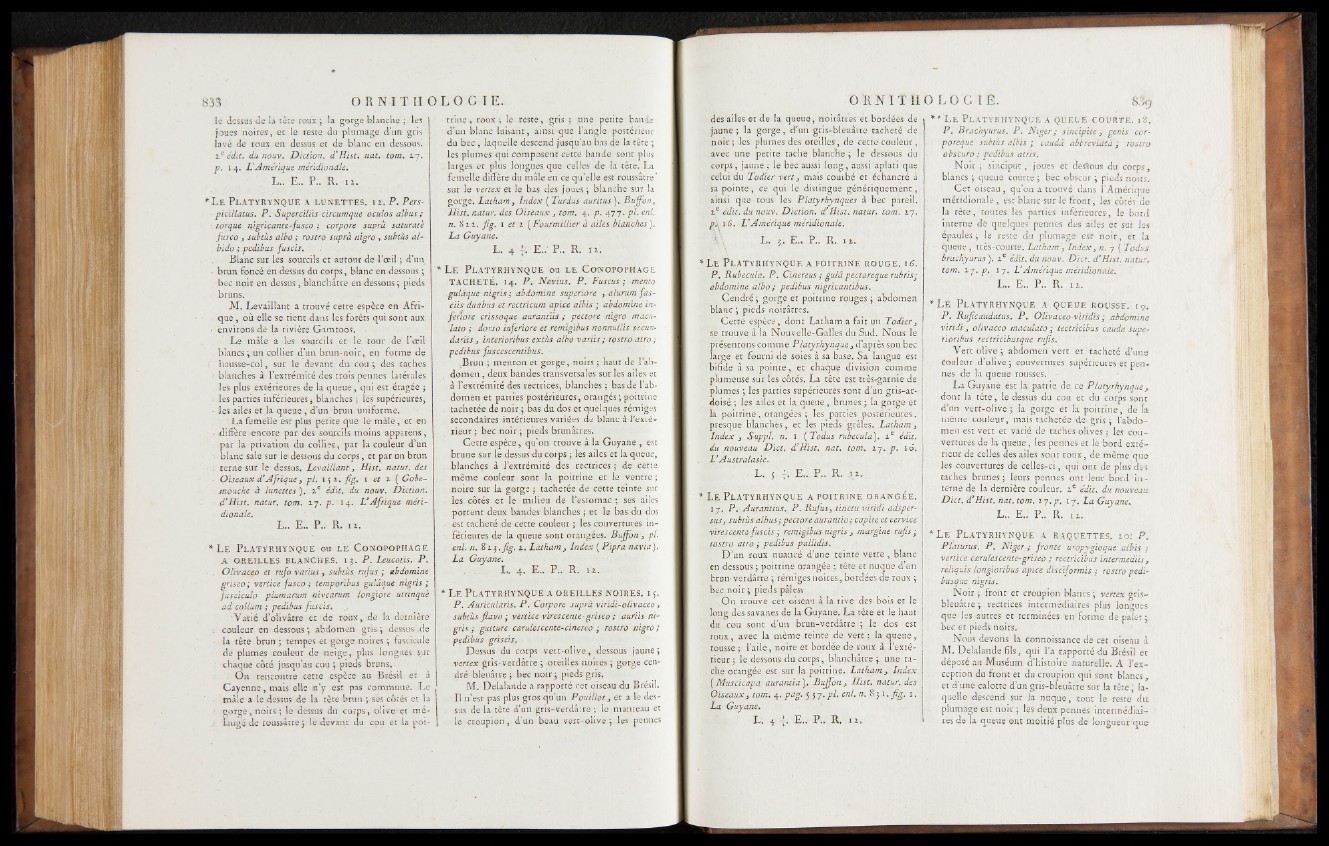 838 ORNITHOLOGIE.
le dessus de la tête roux ; la gorge blanche ; les
joues noires, et le reste du plumage d'un gris
lavé de roux en dessus et de blanc en dessous.
2e édit. du nouv. Diction. d'Hist. nat. tom. 27.
p. 14. L'Amérique méridionale.
L.. E.. P.. R. 12.
* LE PLATYRYNQUE A LUNETTES. 12. P. Pers-
picillatus. P. Superciliis circumque oculos albus ;
torque nigricante-fusco ; corpore suprà saturatè
fusco , subtùs albo ; rostro suprà nigro , subtùs al-
bido ; pedibus fuscis.
Blanc sur les sourcils et autour de l'œil ; d'un
brun foncé en dessus du corps, blanc en dessous ;
bec noir en dessus, blanchâtre en dessons ; pieds
bruns.
M. Levaillant a trouvé cette espèce en Afri-
que, où elle se tient dans les forêts qui sont aux
environs de la rivière Gamtoos.
Le mâle a les sourcils et le tour de l'œil
blancs ; un collier d'un brun-noir, en forme de
hausse-col, sur le devant du cou ; des taches
blanches à l'extrémité des trois pennes latérales
les plus extérieures de la queue, qui est étagée ;
les parties inférieures, blanches ; les supérieures,
les ailes et la queue, d'un brun uniforme.
La femelle est plus petite que le mâle, et en
diffère encore par des sourcils moins apparens,
par la privation du collier, par la couleur d'un
blanc sale sur le dessous du corps, et par un brun
terne sur le dessus. Levaillant, Hist. natur. des
Oiseaux d'Afrique, pl. 152. fig. 1 et 2 ( Gobe-
mouche à lunettes ). 2e édit. du nouv. Diction.
d'Hist. natur. tom. 27. p. 14. L'Afrique méri-
dionale.
L.. E.. P.. R. 12.
* LE PLATYRHYNQUE ou LE CONOPOPHAGE
A OREILLES BLANCHES. 13. P. Leucotis. P.
Olivaceo et rufo varius , subtùs rufus ; abdomine
griseo ; vertice fusco ; temporibus gulâque nigris ;
fasciculo plumarum nivearum longiore utrinquè
ad collum ; pedibus fuscis.
Varié d'olivâtre et de roux, de la dernière
couleur en dessous ; abdomen gris ; dessus de
la tête brun ; tempes et gorge noires ; fascicule
de plumes couleur de neige, plus longues sur
chaque côté jusqu'au cou ; pieds bruns.
On rencontre cette espèce au Brésil et à
Cayenne, mais elle n'y est pas commune. Le
mâle a le dessus de la tête brun ; ses côtés et la
gorge, noirs ; le dessus du corps, olive et mé-
langé de roussâtre ; le devant du cou et la poi-
trine, roux ; le reste, gris ; une petite bande
d'un blanc luisant, ainsi que l'angle postérieur
du bec, laquelle descend jusqu'au bas de la tête ;
les plumes qui composent cette bande sont plus
larges et plus longues que celles de la tête. La
femelle diffère du mâle en ce qu'elle est roussâtre
sur le vertex et le bas des joues ; blanche sur la
gorge. Latham, Index ( Turdus auritus ). Buffon,
Hist. natur. des Oiseaux , tom. 4. p. 477. pl. enl.
n. 822. fig. 1 et 2 ( Fourmillier à ailes blanches ).
La Guyane.
L. 4 ½. E.. P.. R. 12.
* LE PLATYRHYNQUE ou LE CONOPOPHAGE
TACHETÉ. 14. P. Nevius. P. Fuscus ; mento
gulâque nigris ; abdomine superiore , alarum fas-
ciis duabus et rectricum apice albis ; abdomine in-
feriore crissoque aurantiis ; pectore nigro macu-
lato ; dorso inferiore et remigibus nonnullis secun-
dariis , interioribus extùs albo variis ; rostro atro ;
pedibus fuscescentibus.
Brun ; menton et gorge, noirs ; haut de l'ab-
domen, deux bandes transversales sur les ailes et
à l'extrémité des rectrices, blanches ; bas de l'ab-
domen et parties postérieures, orangés ; poitrine
tachetée de noir ; bas du dos et quelques rémiges
secondaires intérieures variées de blanc à l'exté-
rieur ; bec noir ; pieds brunâtres.
Cette espèce, qu'on trouve à la Guyane, est
brune sur le dessus du corps ; les ailes et la queue,
blanches à l'extrémité des rectrices ; de cette
même couleur sont la poitrine et le ventre ;
noire sur la gorge ; tachetée de cette teinte sur
les côtés et le milieu de l'estomac ; ses ailes
portent deux bandes blanches ; et le bas du dos
est tacheté de cette couleur ; les couvertures in-
férieures de la queue sont orangées. Buffon, pl.
enl. n. 823. fig. 2. Latham, Index ( Pipra nævia ).
La Guyane.
L. 4. E.. P.. R. 12.
* LE PLATYRHYNQUE A OREILLES NOIRES. 15.
P. Auricularis. P. Corpore suprà viridi-olivaceo ,
subtùs flavo ; vertice virescente-griseo ; auriis ni-
gris ; gutture cærulescente-cinereo ; rostro nigro ;
pedibus griseis.
Dessus du corps vert-olive, dessous jaune ;
vertex gris-verdâtre ; oreilles noires ; gorge cen-
dré-bleuâtre ; bec noir ; pieds gris.
M. Delalande a rapporté cet oiseau du Brésil.
Il n'est pas plus gros qu'un Pouillot, et a le des-
sus de la tête d'un gris-verdâtre ; le manteau et
le croupion, d'un beau vert-olive ; les pennes
ORNITHOLOGIE. 839
des ailes et de la queue, noirâtres et bordées de
jaune ; la gorge, d'un gris-bleuâtre tacheté de
noir ; les plumes des oreilles, de cette couleur,
avec une petite tache blanche ; le dessous du
corps, jaune ; le bec aussi long, aussi aplati que
celui du Todier vert, mais courbé et échancré à
sa pointe, ce qui le distingue génériquement,
ainsi que tous les Platyrhynques à bec pareil.
2e édit. du nouv. Diction. d'Hist. natur. tom. 27.
p. 16. L'Amérique méridionale.
L. 3. E.. P.. R. 12.
* LE PLATYRHYNQUE A POITRINE ROUGE. 16.
P. Rubecula. P. Cinereus ; gulâ pectoreque rubris ;
abdomine albo ; pedibus nigricantibus.
Cendré ; gorge et poitrine rouges ; abdomen
blanc ; pieds noirâtres.
Cette espèce, dont Latham a fait un Todier,
se trouve à la Nouvelle-Galles du Sud. Nous le
présentons comme Platyrhynque, d'après son bec
large et fourni de soies à sa base. Sa langue est
bifide à sa pointe, et chaque division comme
plumeuse sur les côtés. La tête est très-garnie de
plumes ; les parties supérieures sont d'un gris-ar-
doisé ; les ailes et la queue, brunes ; la gorge et
la poitrine, orangées ; les parties postérieures,
presque blanches, et les pieds grêles. Latham,
Index , Suppl. n. 1 ( Todus rubecula ). 2e édit.
du nouveau Dict. d'Hist. nat. tom. 27. p. 16.
L'Australasie.
L. 5 ½. E.. P.. R. 12.
* LE PLATYRHYNQUE A POITRINE ORANGÉE.
17. P. Aurantius. P. Rufus, tinctu viridi adsper-
sus, subtùs albus ; pectore aurantio ; capite et cervice
virescente fuscis ; remigibus nigris , margine rufis ;
rostro atro ; pedibus pallidis.
D'un roux nuancé d'une teinte verte, blanc
en dessous ; poitrine orangée ; tête et nuque d'un
brun verdâtre ; rémiges noires, bordées de roux ;
bec noir ; pieds pâles.
On trouve cet oiseau à la rive des bois et le
long des savanes de la Guyane. La tête et le haut
du cou sont d'un brun-verdâtre ; le dos est
roux, avec la même teinte de vert ; la queue,
rousse ; l'aile, noire et bordée de roux à l'exté-
rieur ; le dessous du corps, blanchâtre ; une ta-
che orangée est sur la poitrine. Latham, Index
( Muscicapa aurantia ). Buffon, Hist. natur. des
Oiseaux, tom. 4. pag. 557. pl. enl. n. 831. fig. 1.
La Guyane.
L. 4 ½. E.. P.. R. 12.
** LE PLATYRHYNQUE A QUEUE COURTE. 18.
P. Brachyurus. P. Niger ; sincipite , genis cor-
poreque subtùs albis ; caudâ abbreviatâ ; rostro
obscuro ; pedibus atris.
Noir ; sinciput, joues et dessous du corps,
blancs ; queue courte ; bec obscur ; pieds noirs.
Cet oiseau, qu'on a trouvé dans l'Amérique
méridionale, est blanc sur le front, les côtés de
la tête, toutes les parties inférieures, le bord
interne de quelques pennes des ailes et sur les
épaules ; le reste du plumage est noir, et la
queue, très-courte. Latham, Index, n. 7 ( Todus
brachyurus ). 2e édit. du nouv. Dict. d'Hist. natur.
tom. 27. p. 17. L'Amérique méridionale.
L.. E.. P.. R. 12.
* LE PLATYRHYNQUE A QUEUE ROUSSE. 19.
P. Ruficaudatus. P. Olivaceo-viridis ; abdomine
viridi , olivaceo maculato ; tectricibus caudæ supe-
rioribus rectricibusque rufis.
Vert olive ; abdomen vert et tacheté d'une
couleur d'olive ; couvertures supérieures et pen-
nes de la queue rousses.
La Guyane est la patrie de ce Platyrhynque,
dont la tête, le dessus du cou et du corps sont
d'un vert-olive ; la gorge et la poitrine, de la
même couleur, mais tachetée de gris ; l'abdo-
men est vert et varié de taches olives ; les cou-
vertures de la queue, les pennes et le bord exté-
rieur de celles des ailes sont roux, de même que
les couvertures de celles-ci, qui ont de plus des
taches brunes ; leurs pennes ont leur bord in-
terne de la dernière couleur. 2e édit. du nouveau
Dict. d'Hist. nat. tom. 27. p. 17. La Guyane.
L.. E.. P.. R. 12.
* LE PLATYRHYNQUE A RAQUETTES. 20. P.
Platurus. P. Niger ; fronte uropygioque albis ;
vertice cærulescente-griseo ; rectricibus intermediis ,
reliquis longioribus apice disciformis ; rostro pedi-
busque nigris.
Noir ; front et croupion blancs ; vertex gris-
bleuâtre ; rectrices intermédiaires plus longues
que les autres et terminées en forme de palet ;
bec et pieds noirs.
Nous devons la connoissance de cet oiseau à
M. Delalande fils, qui l'a rapporté du Brésil et
déposé au Muséum d'histoire naturelle. A l'ex-
ception du front et du croupion qui sont blancs,
et d'une calotte d'un gris-bleuâtre sur la tête, la-
quelle descend sur la nuque, tout le reste du
plumage est noir ; les deux pennes intermédiai-
res de la queue ont moitié plus de longueur que